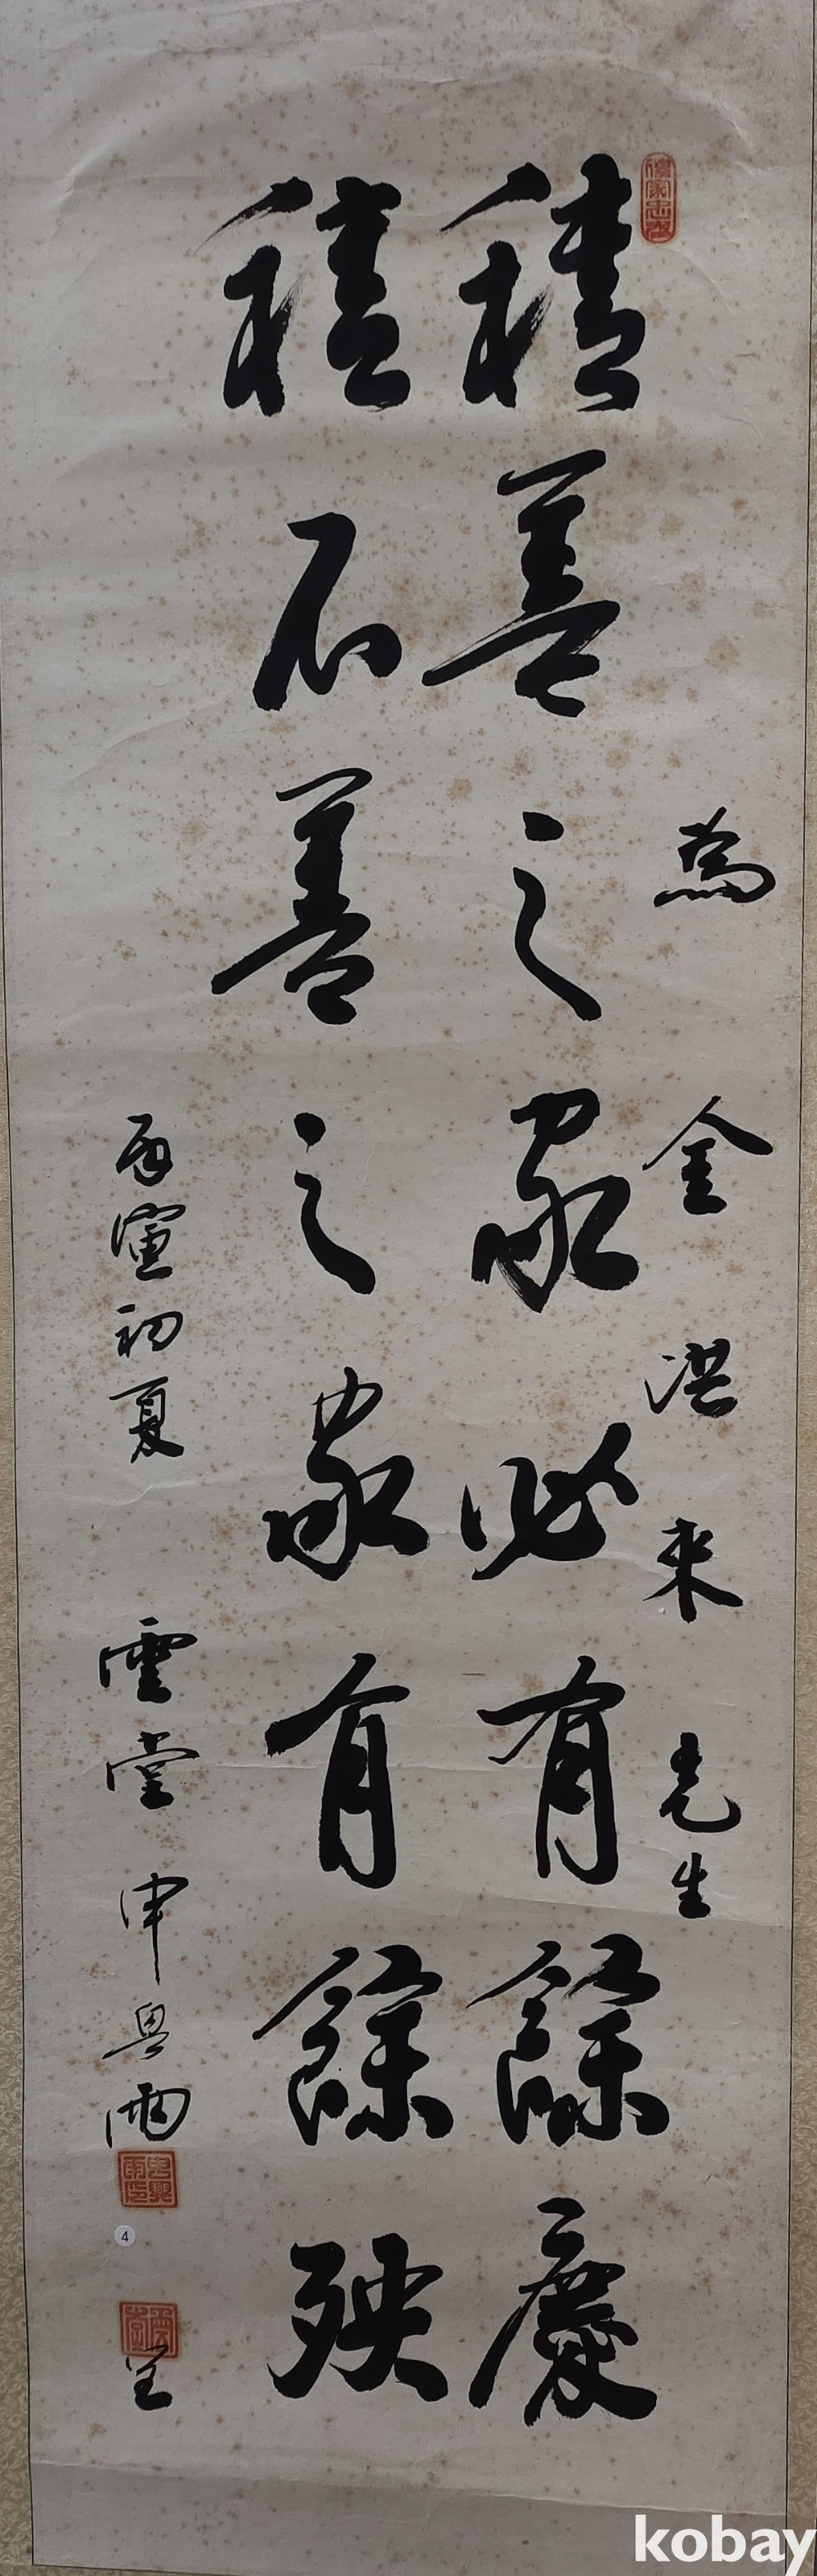 為 金洪来先生
積善之家必有餘慶
積不善之家有餘殃
丙寅初夏 雲堂 申興雨
呈
4
kobay